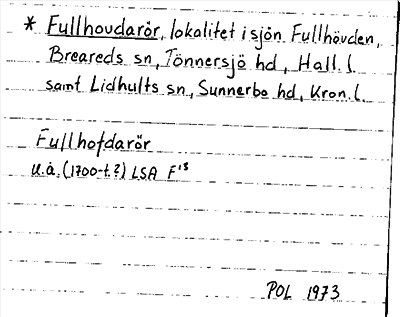 * Fullhoudarör, lokalitet i sjön Fullhövden,
Breareds sn, Tönnersjö hd, Hall. l.
samt Lidhults sn, Sunnerbo hd, Kron. l.
Fullhofdarör
u.å. (1700-t.?) LSA F¹⁸
POL 1973